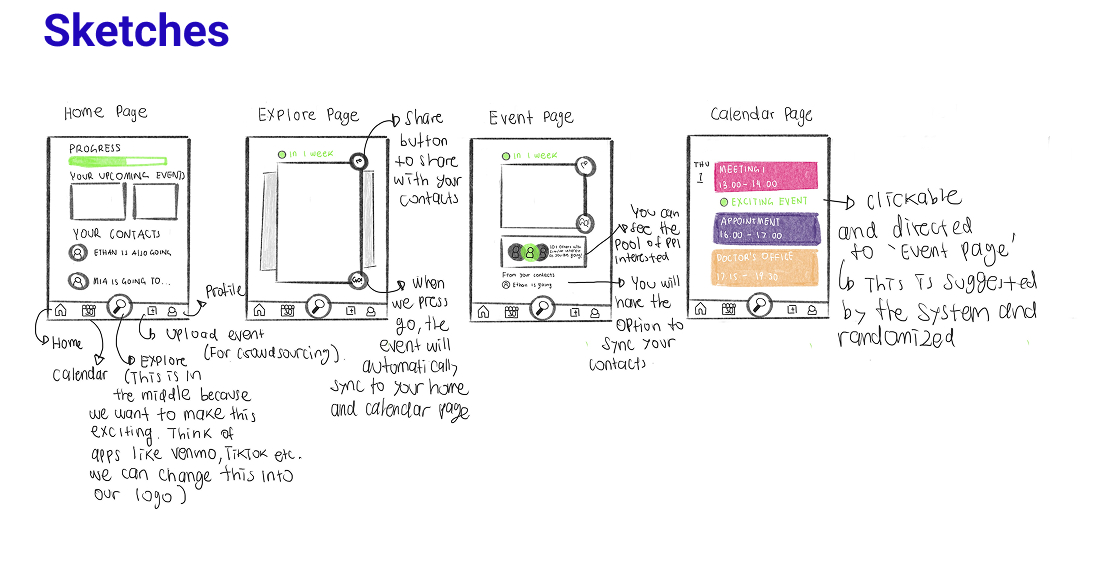 Sketches
Home Page
PROGRESS
YOUR UPCOMING EVENTS
YOUR CONTACTS
ETHAN IS ALSO GOING
MIA IS GOING TO...
Home
Calendar
EXPLORE
(This is in
the middle because
we want to make this
exciting. Think of
apps like venmo, TikTok etc.
we can change this into
our logo)
Upload event
(For crowdsourcing).
Profile
EXPLORE Page
In 1 week
GO!
Share
button
to share
with your
contacts
When
we press
go, the
event will
automatically
sync to your home
and calendar page
Event Page
In 1 week
GO!
From your contacts
Ethan is going
You can
see the
Pool of PPl
interested
You will
have the
option to
sync your
contacts
Calendar Page
THU
1
MEETING 1
13.00 - 14.00
EXCITING EVENT
APPOINTMENT
16.00 - 17.00
DOCTOR'S OFFICE
17.15 - 19.30
clickable
and directed
to 'Event page'
This is suggested
by the system and
randomized